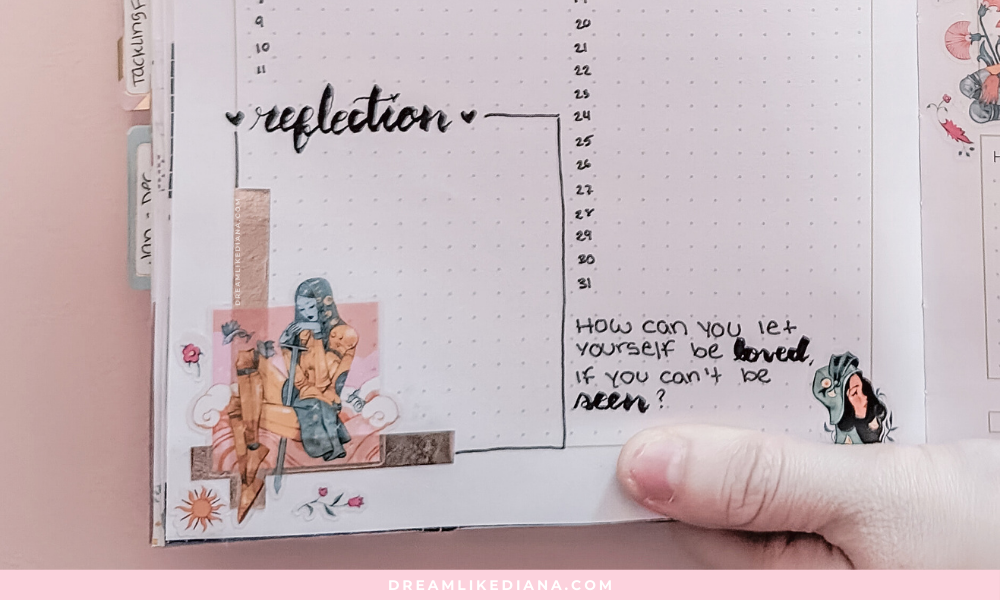 TACKLING
Jan - Dec
9
10
11
reflection
DREAMLIKEDIANA.COM
20
21
22
23
24
25
26
27
28
29
30
31
How can you let
yourself be loved,
if you can't be
seen?
DREAMLIKEDIANA.COM